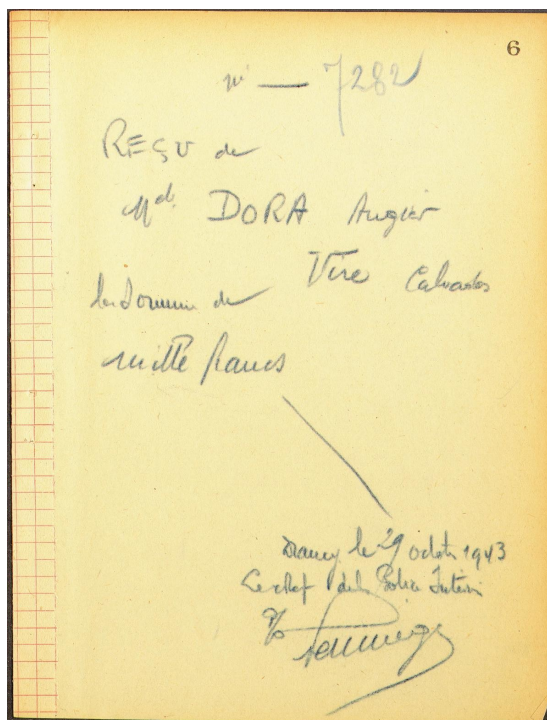 6
n° — 7282
REÇU de
Md. DORA Augier
Vire Calvados
la Somme de
mille francs
Drancy le 29 octob 1943
Le chef de la Police Intéri